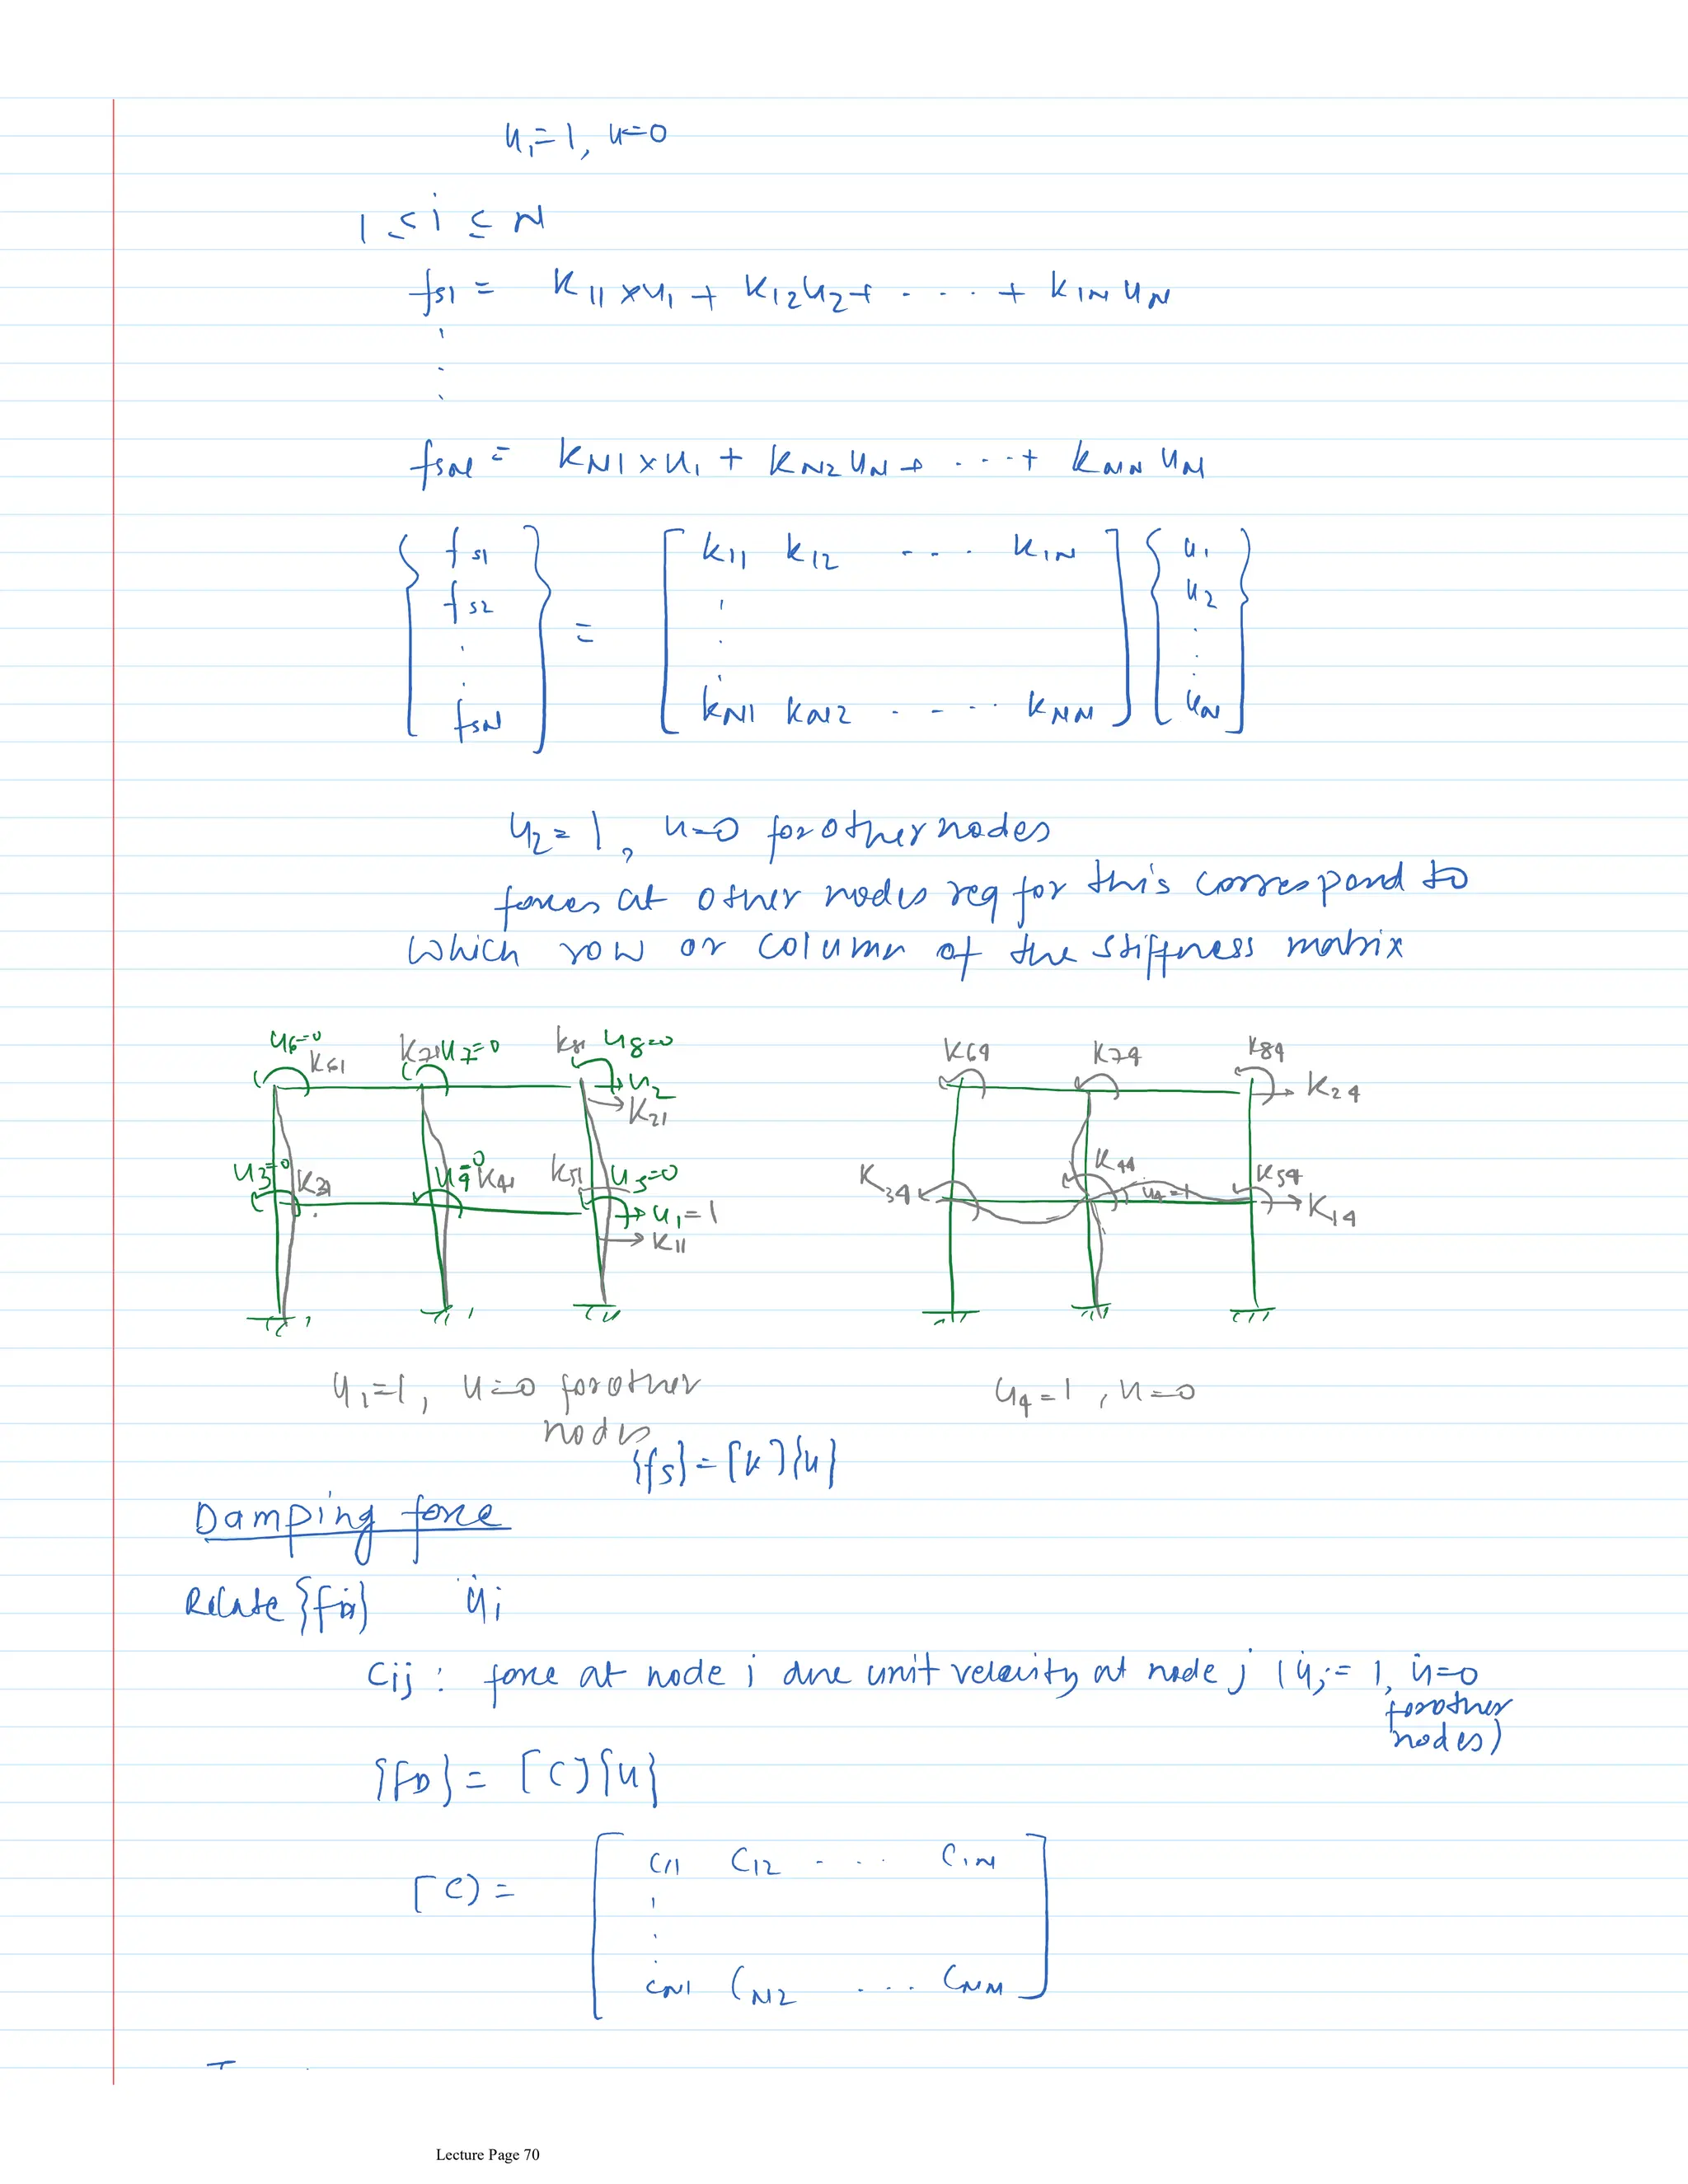 u₁=1, u=0
1 ≤ i ≤ N
fs1 = K11×u1 + K12u2+ . . . . + K1N uN
fsN = KN1×u1 + KN2 uN + . . . + KNN uN
{ fs1 fs2 . . fsN } = [ k11 k12 . . . K1N . . . kN1 kN2 . . . . kNN ] { u1 u2 . . . uN }
u2=1, u=0 for other nodes
forces at other nodes req for this correspond to
which row or column of the stiffness matrix
u6=0 K61 K71 u7=0 k81 u8=0
u2
K21
u3=0 K31 u4=0 K41 k51 u5=0
u1=1
K11
K64 K74 K84
K24
K34 K44 u4=1 K54
K14
u1=1, u=0 for other
nodes
u4=1, u=0
{fs}=[k]{u}
Damping force
Relate {fD} u̇i
Cij : force at node i due unit velocity at node j (u̇j = 1, u̇=0
for other
nodes)
{fD} = [C]{u}
[C] = [ C11 C12 . . . C1N . . . CN1 CN2 . . . CNN ]
Lecture Page 70